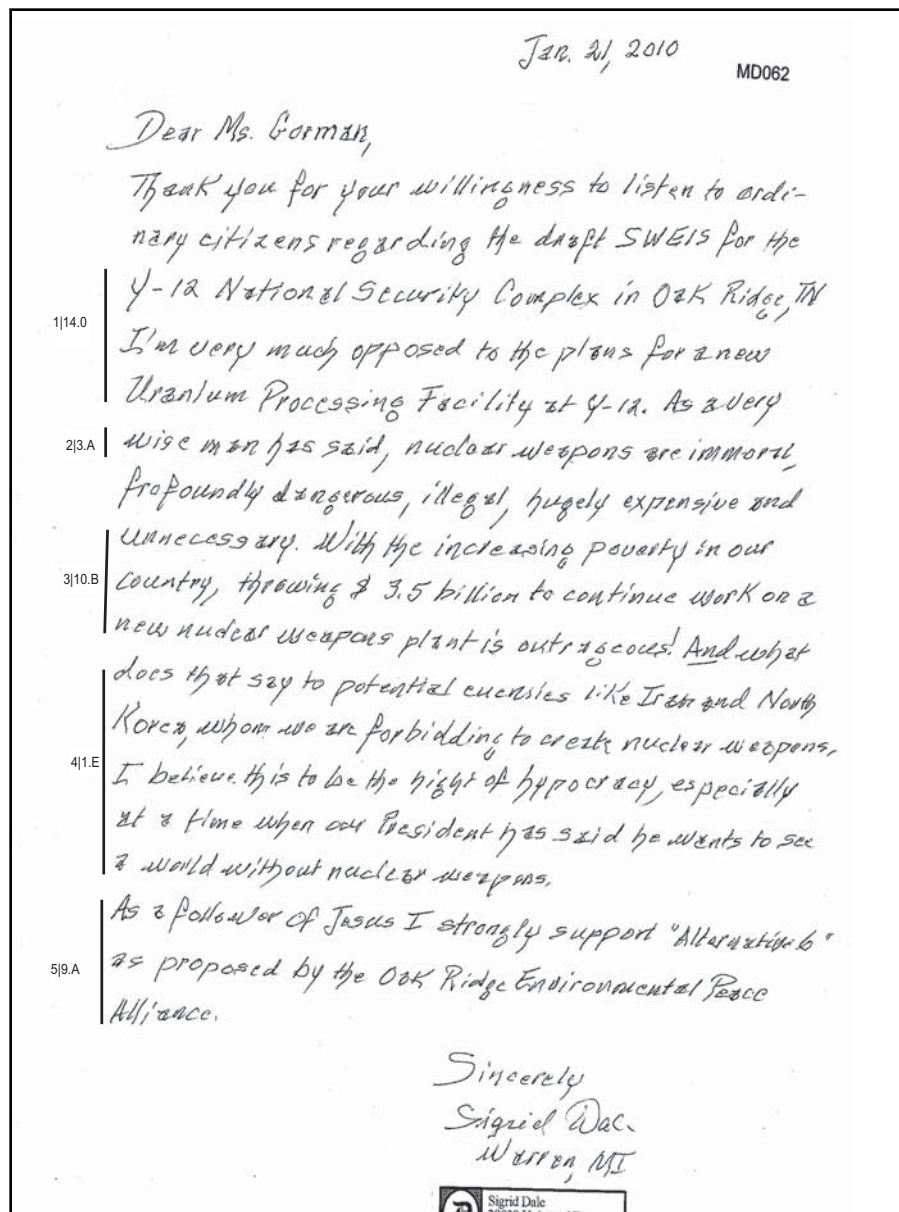 Jan. 21, 2010
MD062
Dear Ms. Gorman,
Thank you for your willingness to listen to ordi-
nary citizens regarding the draft SWEIS for the
Y-12 National Security Complex in Oak Ridge, TN
1|14.0
I'm very much opposed to the plans for a new
Uranium Processing Facility at Y-12. As a very
2|3.A
wise man has said, nuclear weapons are immoral,
profoundly dangerous, illegal, hugely expensive and
unnecessary. With the increasing poverty in our
3|10.B
country, throwing $ 3.5 billion to continue work on a
new nuclear weapons plant is outrageous! And what
does that say to potential enemies like Iran and North
Korea, whom we are forbidding to create nuclear weapons.
4|1.E
I believe this to be the hight of hypocracy, especially
at a time when our President has said he wants to see
a world without nuclear weapons.
As a follower of Jesus I strongly support "Alternative 6"
5|9.A
as proposed by the Oak Ridge Environmental Peace
Alliance.
Sincerely
Sigrid Dale
Warren, MI
D
Sigrid Dale